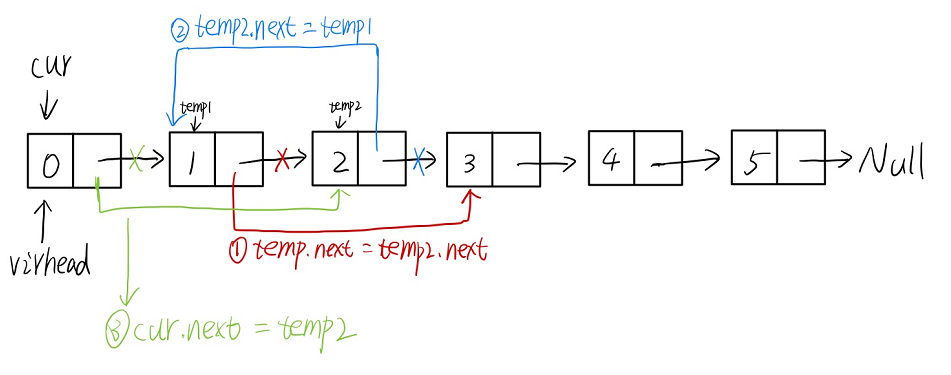 ② temp2.next = temp1
cur
temp1
temp2
0 1 2 3 4 5 Null
virhead
① temp.next = temp2.next
③ cur.next = temp2